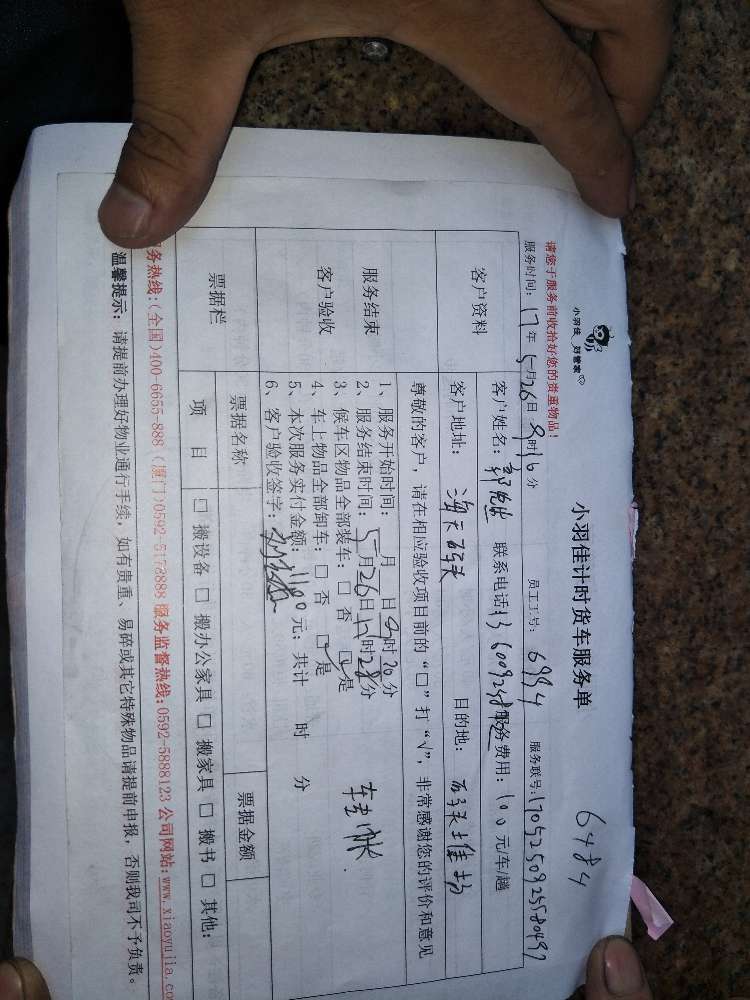 小羽佳 好管家
小羽佳计时货车服务单
6484
请您于服务前收拾好您的贵重物品!
服务时间: 17年 5月26日 9时16分 员工工号: 6994 服务联号:
客户资料
客户姓名: 联系电话: 服务费用: 100 元/车/趟
客户地址: 目的地:
尊敬的客户,请在相应验收项目前的“□”打“√”,非常感谢您的评价和意见
服务结束
客户验收
1、服务开始时间: 月 日 9时20分
2、服务结束时间: 5月26日17时28分
3、候车区物品全部装车: □ 否 ☑ 是
4、车上物品全部卸车: □ 否 ☑ 是
5、本次服务实付金额: 1100元; 共计 时 分
6、客户验收签字:
票据栏
票据名称 票据金额
项 目 □ 搬设备 □ 搬办公家具 □ 搬家具 □ 搬书 □ 其他:
务热线:(全国)400-6655-888 (厦门)0592-5173888 服务监督热线:0592-5888123 公司网站:www.xiaoyujia.co
温馨提示: 请提前办理好物业通行手续,如有贵重、易碎或其它特殊物品请提前申报,否则我司不予负责。